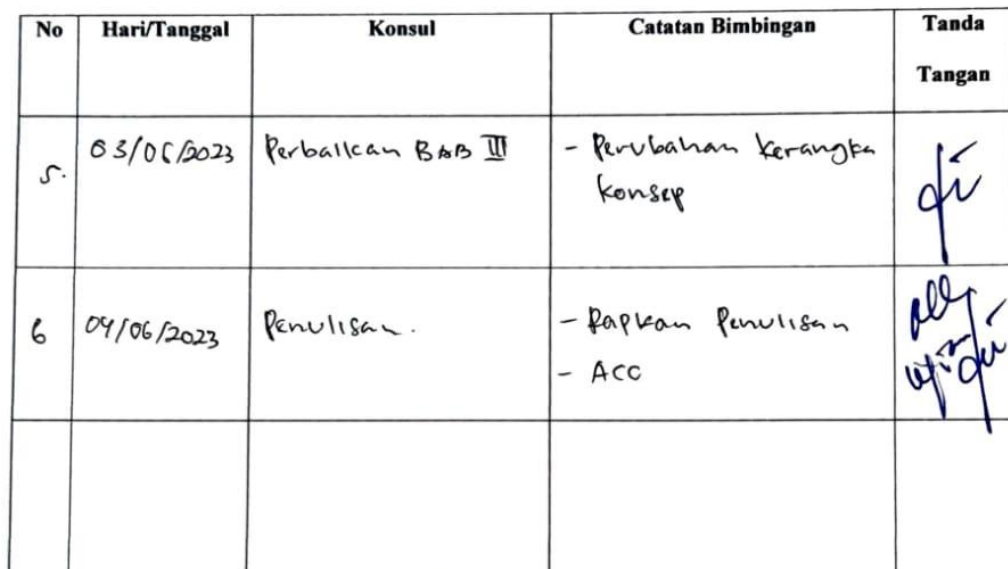 No Hari/Tanggal Konsul Catatan Bimbingan Tanda
Tangan
5. 03/06/2023 Perbaikan BAB III - Perubahan kerangka
konsep
6 04/06/2023 Penulisan. - Rapkan Penulisan
- ACC